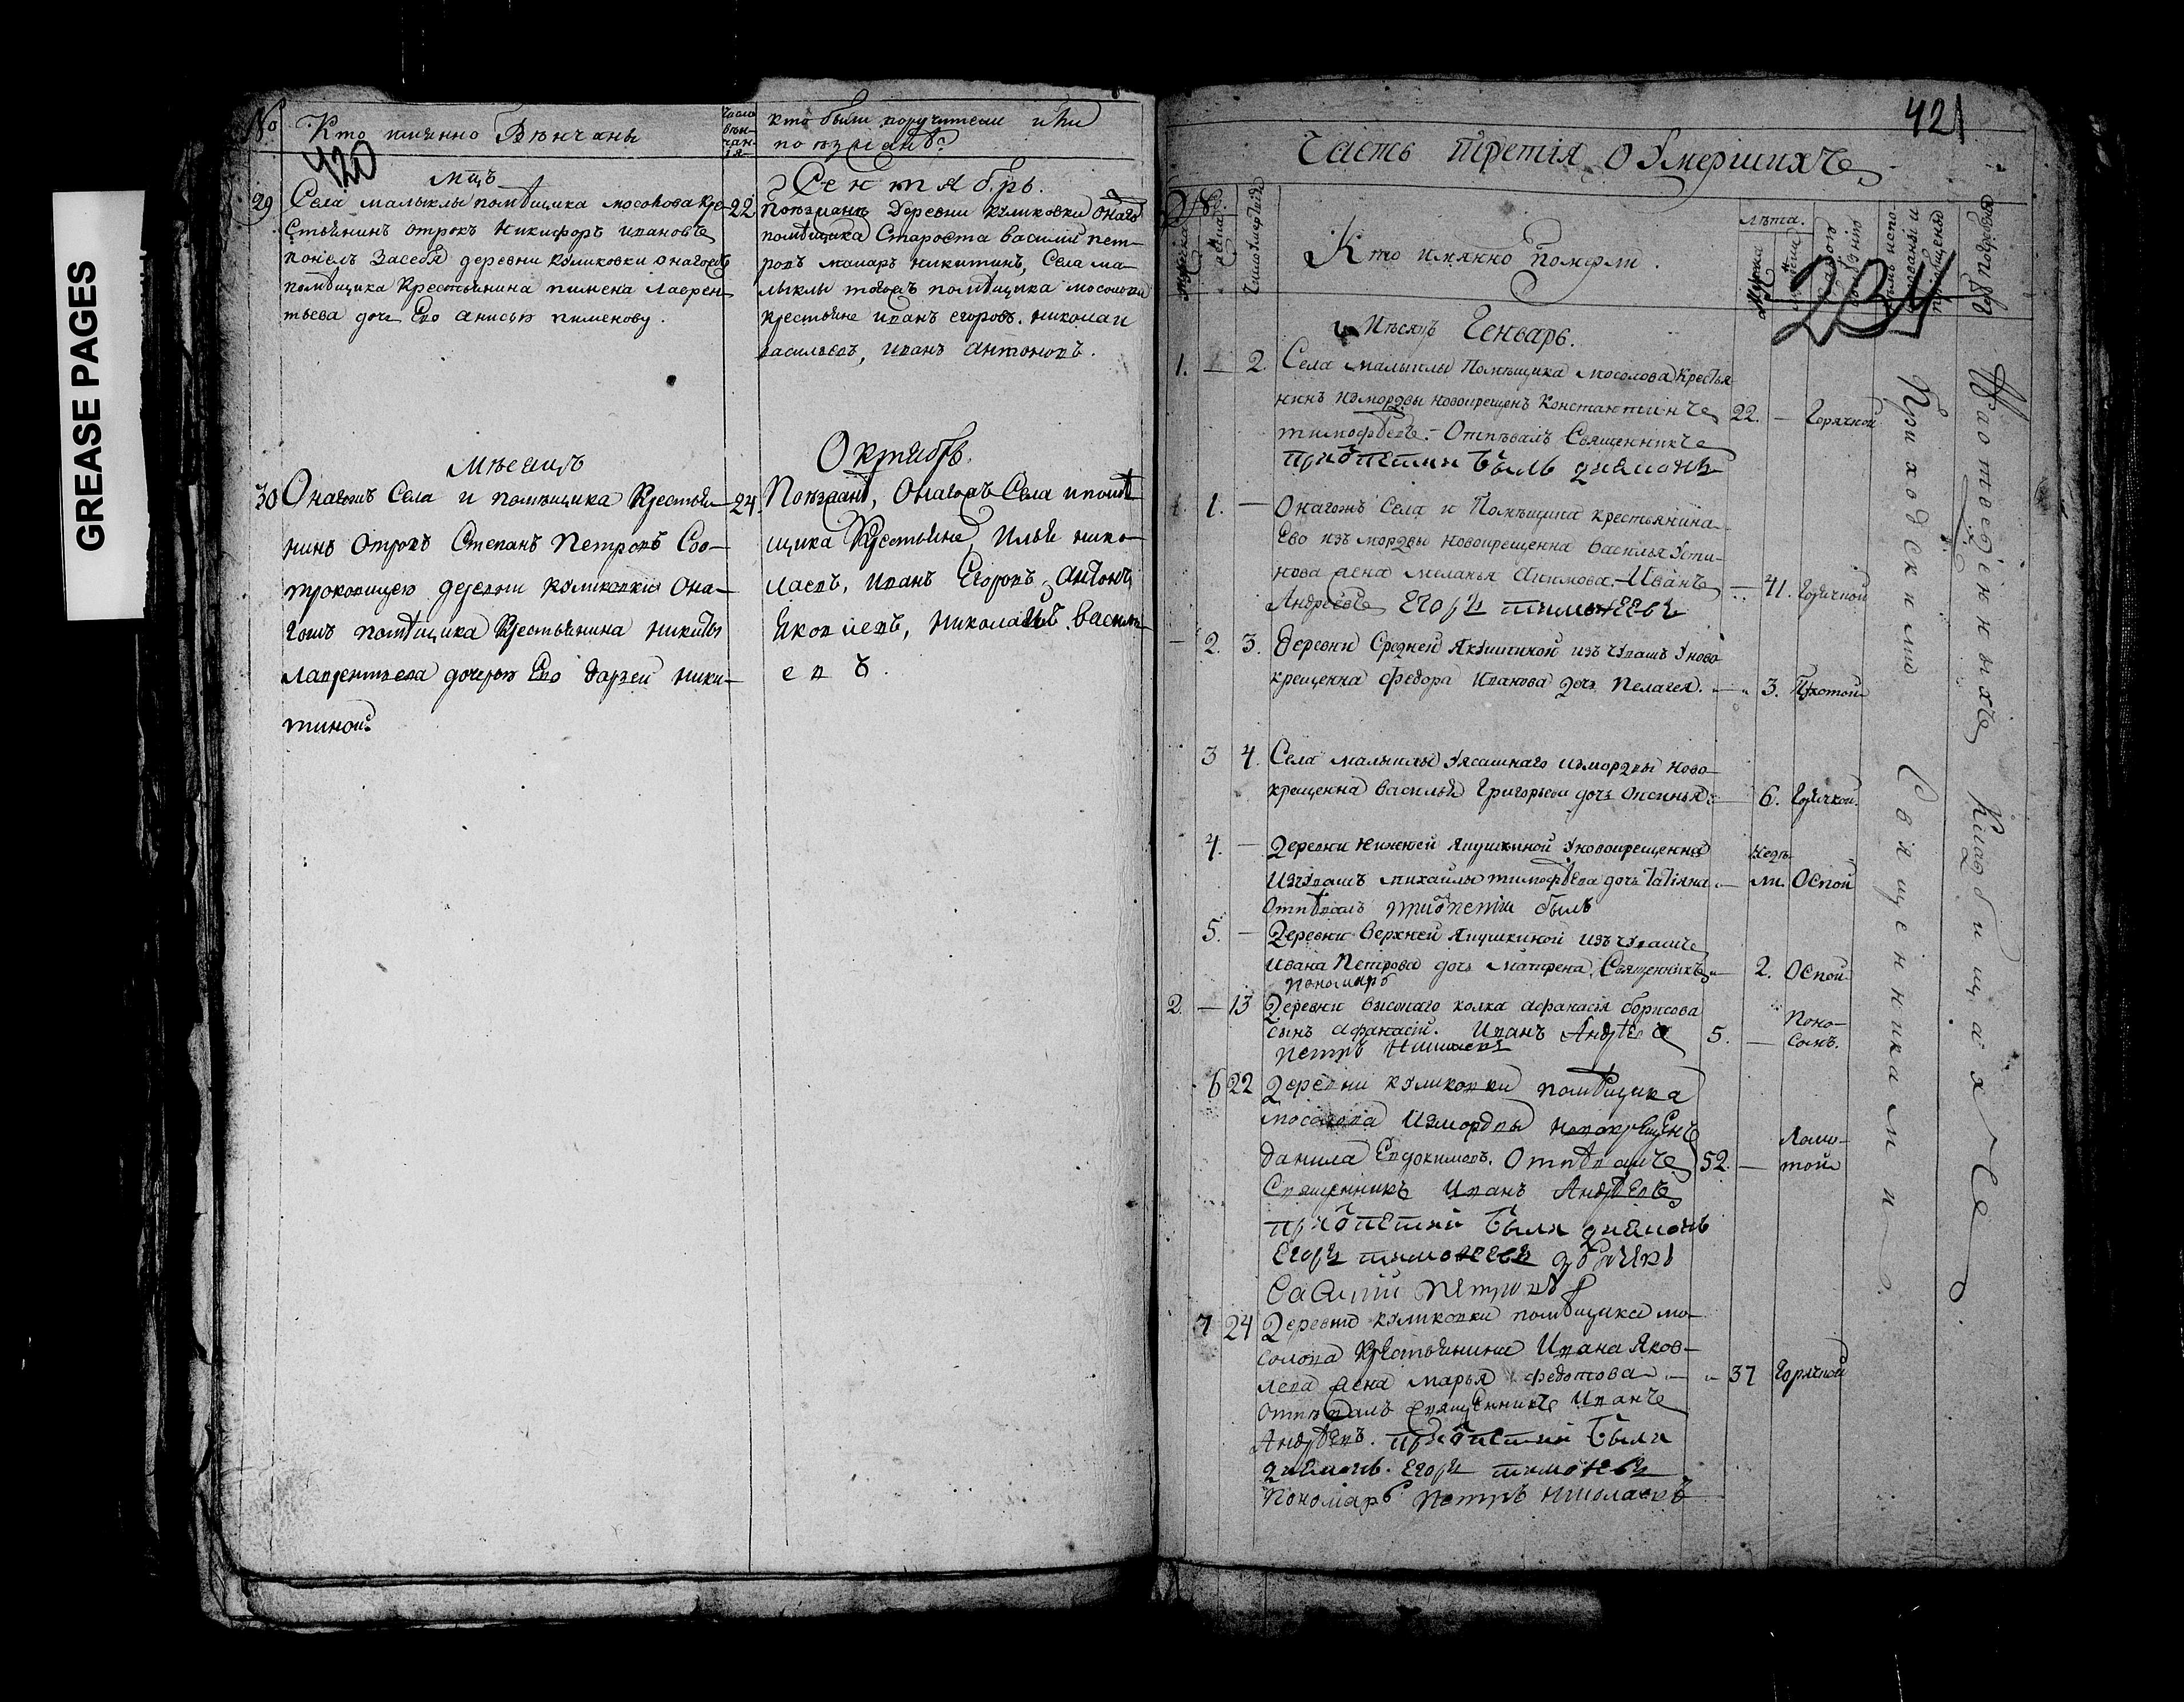 GREASE PAGES
№
Кто имянно Вѣнчаны
число вѣнчанія
кто были поручители или
поѣзжанѣ
420
Мцъ
Сентябрь.
29
Села малыклы помѣщика мосолова кре-
стьянинъ отрокъ никифоръ ивановъ
понелъ засебя деревни куликовки онагожъ
помѣщика крестьянина пимена лаврен-
тьева дочь Ево анисью пименову.
22
поезжанѣ деревни куликовки онаго
помѣщика Староста василий пет-
ровъ макаръ никитинъ, Села ма-
лыклы тогожъ помѣщика мосолова
крестьяне иванъ егоровъ. николаи
васильевъ, иванъ антоновъ.
Мѣсяцъ
Октябрь.
30
Онагожъ Села и помѣщика крестья-
нинъ отрокъ Степанъ Петровъ Соо-
троковицею деревни куликовки она-
гожъ помѣщика крестьянина никиты
лаврентьева дочерью Ево дарьей ники-
тиной
24
Поезжанѣ, Онагожъ Села и помѣ-
щика крестьяне, Илья нико-
лаевъ, иванъ Егоровъ, антонъ
яковлевъ, николай василь-
евъ.
421
Часть третія о Умершихъ
№
мужеска
женска
Число умертвій
Кто имянно померли.
лѣта.
мужска
женска
234
Мѣсяцъ Генварь.
1. — 2.
Села малыклы Помѣщика мосолова крестья-
нинъ измордвы новокрещенъ Константинъ
тимофѣевъ. Отпѣвалъ Священникъ
приотпетии былъ диаконъ
22. — Горячкой
1. —
Онагожъ Села и Помѣщика крестьянина
Ево изъ мордвы новокрещенна василья Усти-
нова жена меланья Акимова. Иванъ
Андреевъ Егоръ тимофеевъ
— 41. Горячкой
— 2. 3.
деревни Средней Якушкиной изъ чувашъ Уново-
крещенна федора Иванова дочь Пелагея.
3.
3 4.
Села малыклы Уясашнаго измордвы ново-
крещенна василья Григорьева дочь Оксинья
6. Горячкой.
4. —
Деревни нижней якушкиной Уновокрещенна
Изчувашъ михайлы тимофѣева дочь Татіяна
Отпѣвалъ приотпетіи былъ
недѣ-
ли. Оспой
5. —
Деревни верхней якушкиной изъ чувашъ
Ивана Петрова дочь матрена. Священникъ
пономарь
2. Оспой
2. — 13
Деревни высокаго колка афанасія борисова
сынъ афанасій. Иванъ Андрѣевъ
петръ Николаевъ
5. — Поно-
сомъ.
6 22
Деревни куликовки помѣщика
мосолова Измордвы новокрещенъ
данила Евдокимовъ. Отпѣвалъ
Священникъ Иванъ Андрѣевъ
приотпетии были диаконъ
Егоръ тимофеевъ дьячекъ
Савелий Петровъ
52. — Ломо-
той
7 24
Деревни куликовки помѣщика мо-
солова крестьянина Ивана Яков-
лева жена марья федотова
отпѣвалъ священникъ Иванъ
Андрѣевъ. приотпетии были
диаконъ. Егоръ тимофеевъ
Пономарь Петръ николаевъ
37 Горячкой
Приходскими Священниками
На отведенныхъ Кладбищахъ